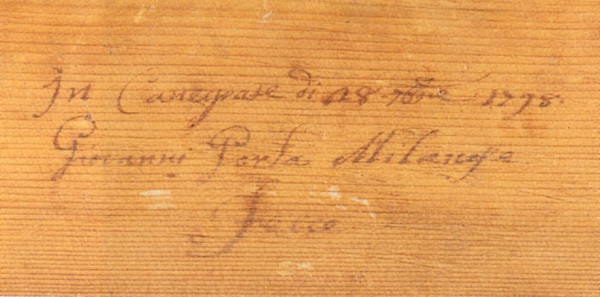 In Canegrate di 18 7bre 1798
Giovanni Porta Milanese
Fece